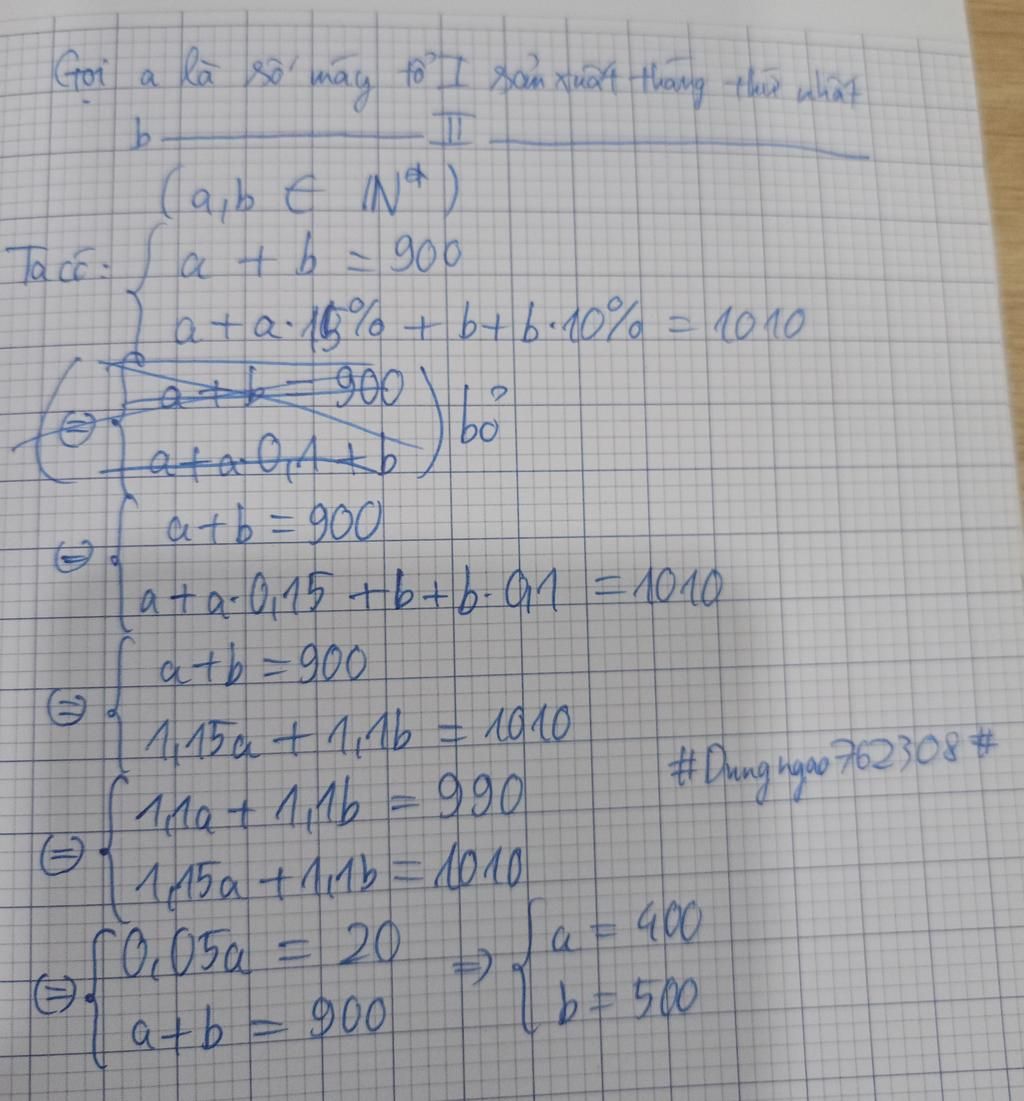 Gọi a là số máy tổ I sản xuất tháng thứ nhất
b ———— II ————
(a, b ∈ IN*)
Ta có: { a + b = 900
a + a·15% + b + b·10% = 1010
(⇔ { a + b = 900
a + a·0,1 + b ) bỏ
⇔ { a + b = 900
a + a·0,15 + b + b·0,1 = 1010
⇔ { a + b = 900
1,15a + 1,1b = 1010
#Dungngao762308#
⇔ { 1,1a + 1,1b = 990
1,15a + 1,1b = 1010
⇔ { 0,05a = 20 ⇒ { a = 400
a + b = 900 b = 500